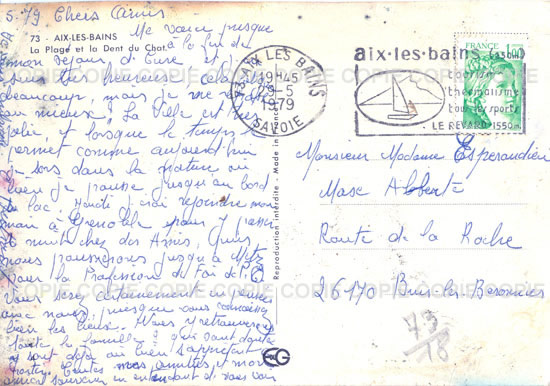 5.79 Chers Amis
73 - AIX-LES-BAINS
La Plage et la Dent du Chat.
Me voici presque
à la fin de
mon séjour d'Cure et
suis très heureuse cela
beaucoup, mais je me repose
au mieux. La Ville est très
jolie et lorsque le temps
permet comme aujourd'hui
je sors dans la nature ou
bien je pousse jusqu'au bord
du lac. Lundi j'irai rejoindre mon
mari à Grenoble pour y passer
la nuit chez des Amis, puis
nous pousserons jusqu'à Metz
pour la Profession de Foi de
Vous serez certainement en pensée
avec nous, puisque vous connaissez
bien les lieux. Vous y retrouverez
toute la famille qui sans doute
y sont déjà ou bien s'apprêtent à
partir. Toutes mes amitiés et mon
meilleur souvenir en attendant de vous voir
Reproduction interdite
Made in France
73 AIX LES BAINS
19H45
29-5
1979
SAVOIE
aix·les·bains
thermalisme
tous les sports
LE REVARD 1550m
FRANCE
1,00
Monsieur Madame Esperandieu
Mase Abberte
Route de la Roche
26170 Buis les Baronnies
73
18
COPIE COPIE COPIE COPIE COPIE